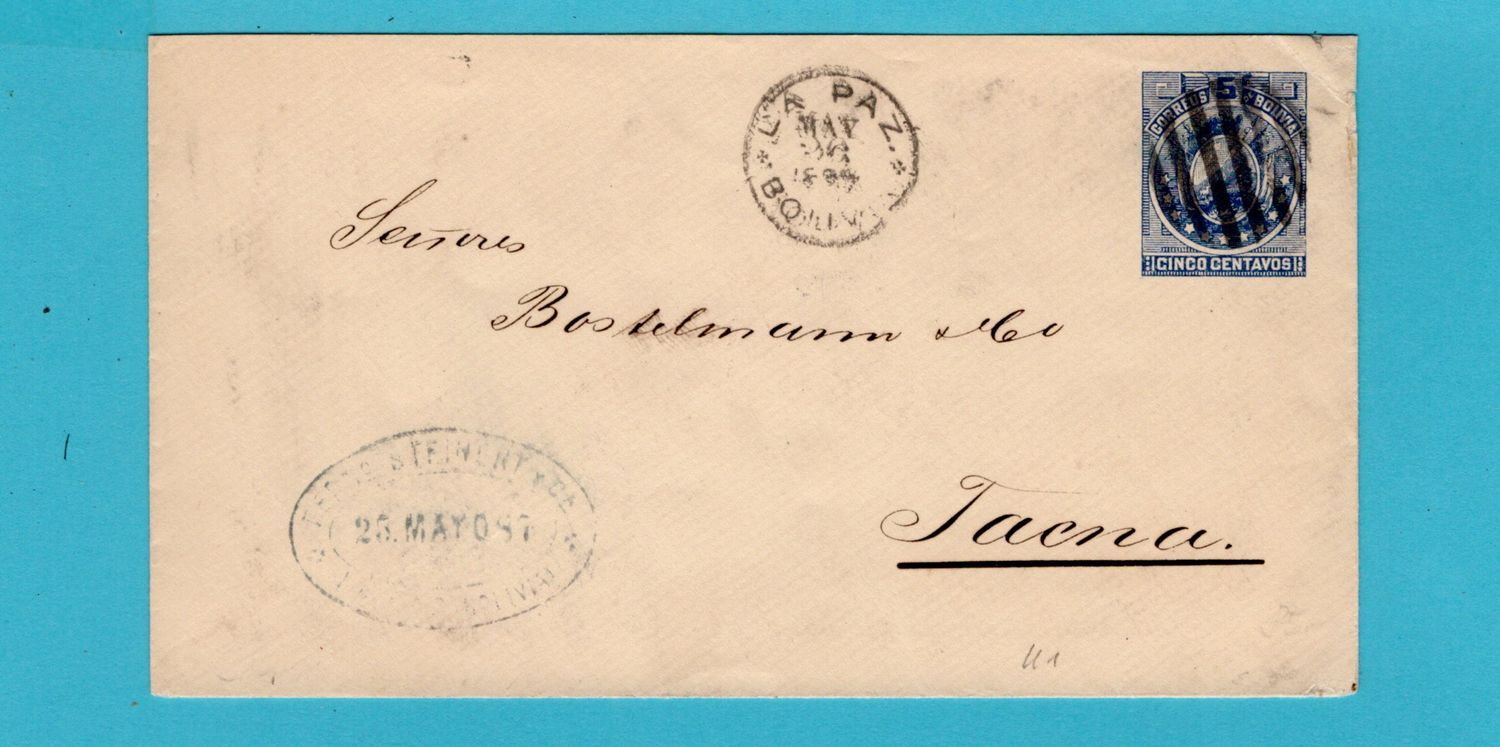 LA PAZ.
MAY
26
BOLIVIA
CORREOS 5 DE BOLIVIA
CINCO CENTAVOS
Señores
Bostelmann & Co
STEINERT & CA
25. MAYO 87
Tacna.
U1